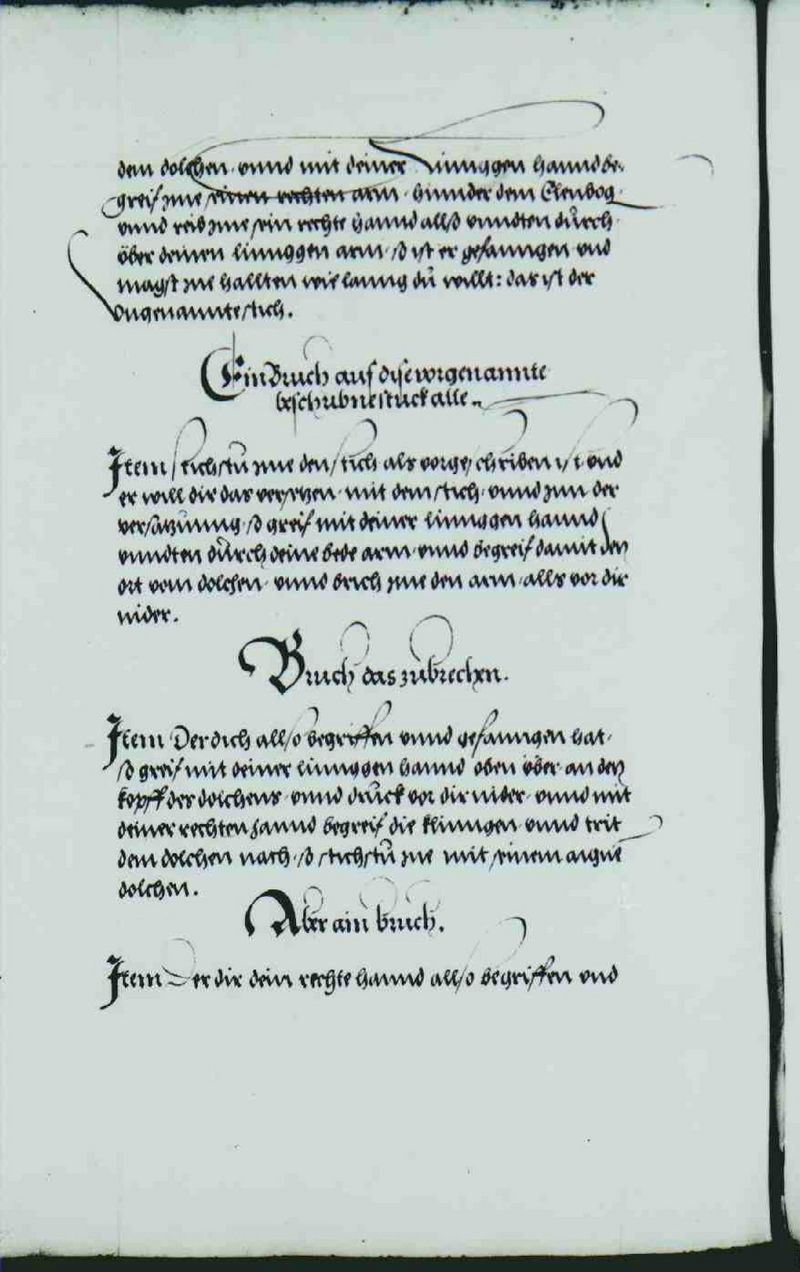 dem dolchen · vnnd mit deiner Linnggen hannd be-
greif jme seinen rechten arm · hinnder dem Elenbog ·
vnnd reib jme sein rechte hannd allß vnndten durch ·
über deinen linnggen arm · so ist er gefanngen vnd
magst jne hallten wie lanng dü willt : das ist der
Vngenannte stich .
Ein Bruch auf dise vorgenannte
beschribne stuck alle .
Item stichstu jme den stich als vorgeschriben ist vnd
er will dir das versetzen · mit dem stich · vnnd jnn der
versatzunng · so greif mit deiner linnggen hannd
vnndten dürch deine bede arm · vnnd begreif damit den
ort vom dolchen · vnnd brich jme den arm · alls vor dir
nider .
Bruch das zübrechen .
Item Der dich allso begriffen vnnd gefanngen hat ·
so greif mit deiner linnggen hannd oben über an den
kopff des dolchens · vnnd drück vor dir nider · vnnd mit
deiner rechten hannd begreif die klinngen · vnnd trit
dem dolchen nach · so stichstü jne mit seinem aigne
dolchen .
Aber ain bruch .
Item Der dir dein rechte hannd allso begriffen vnd